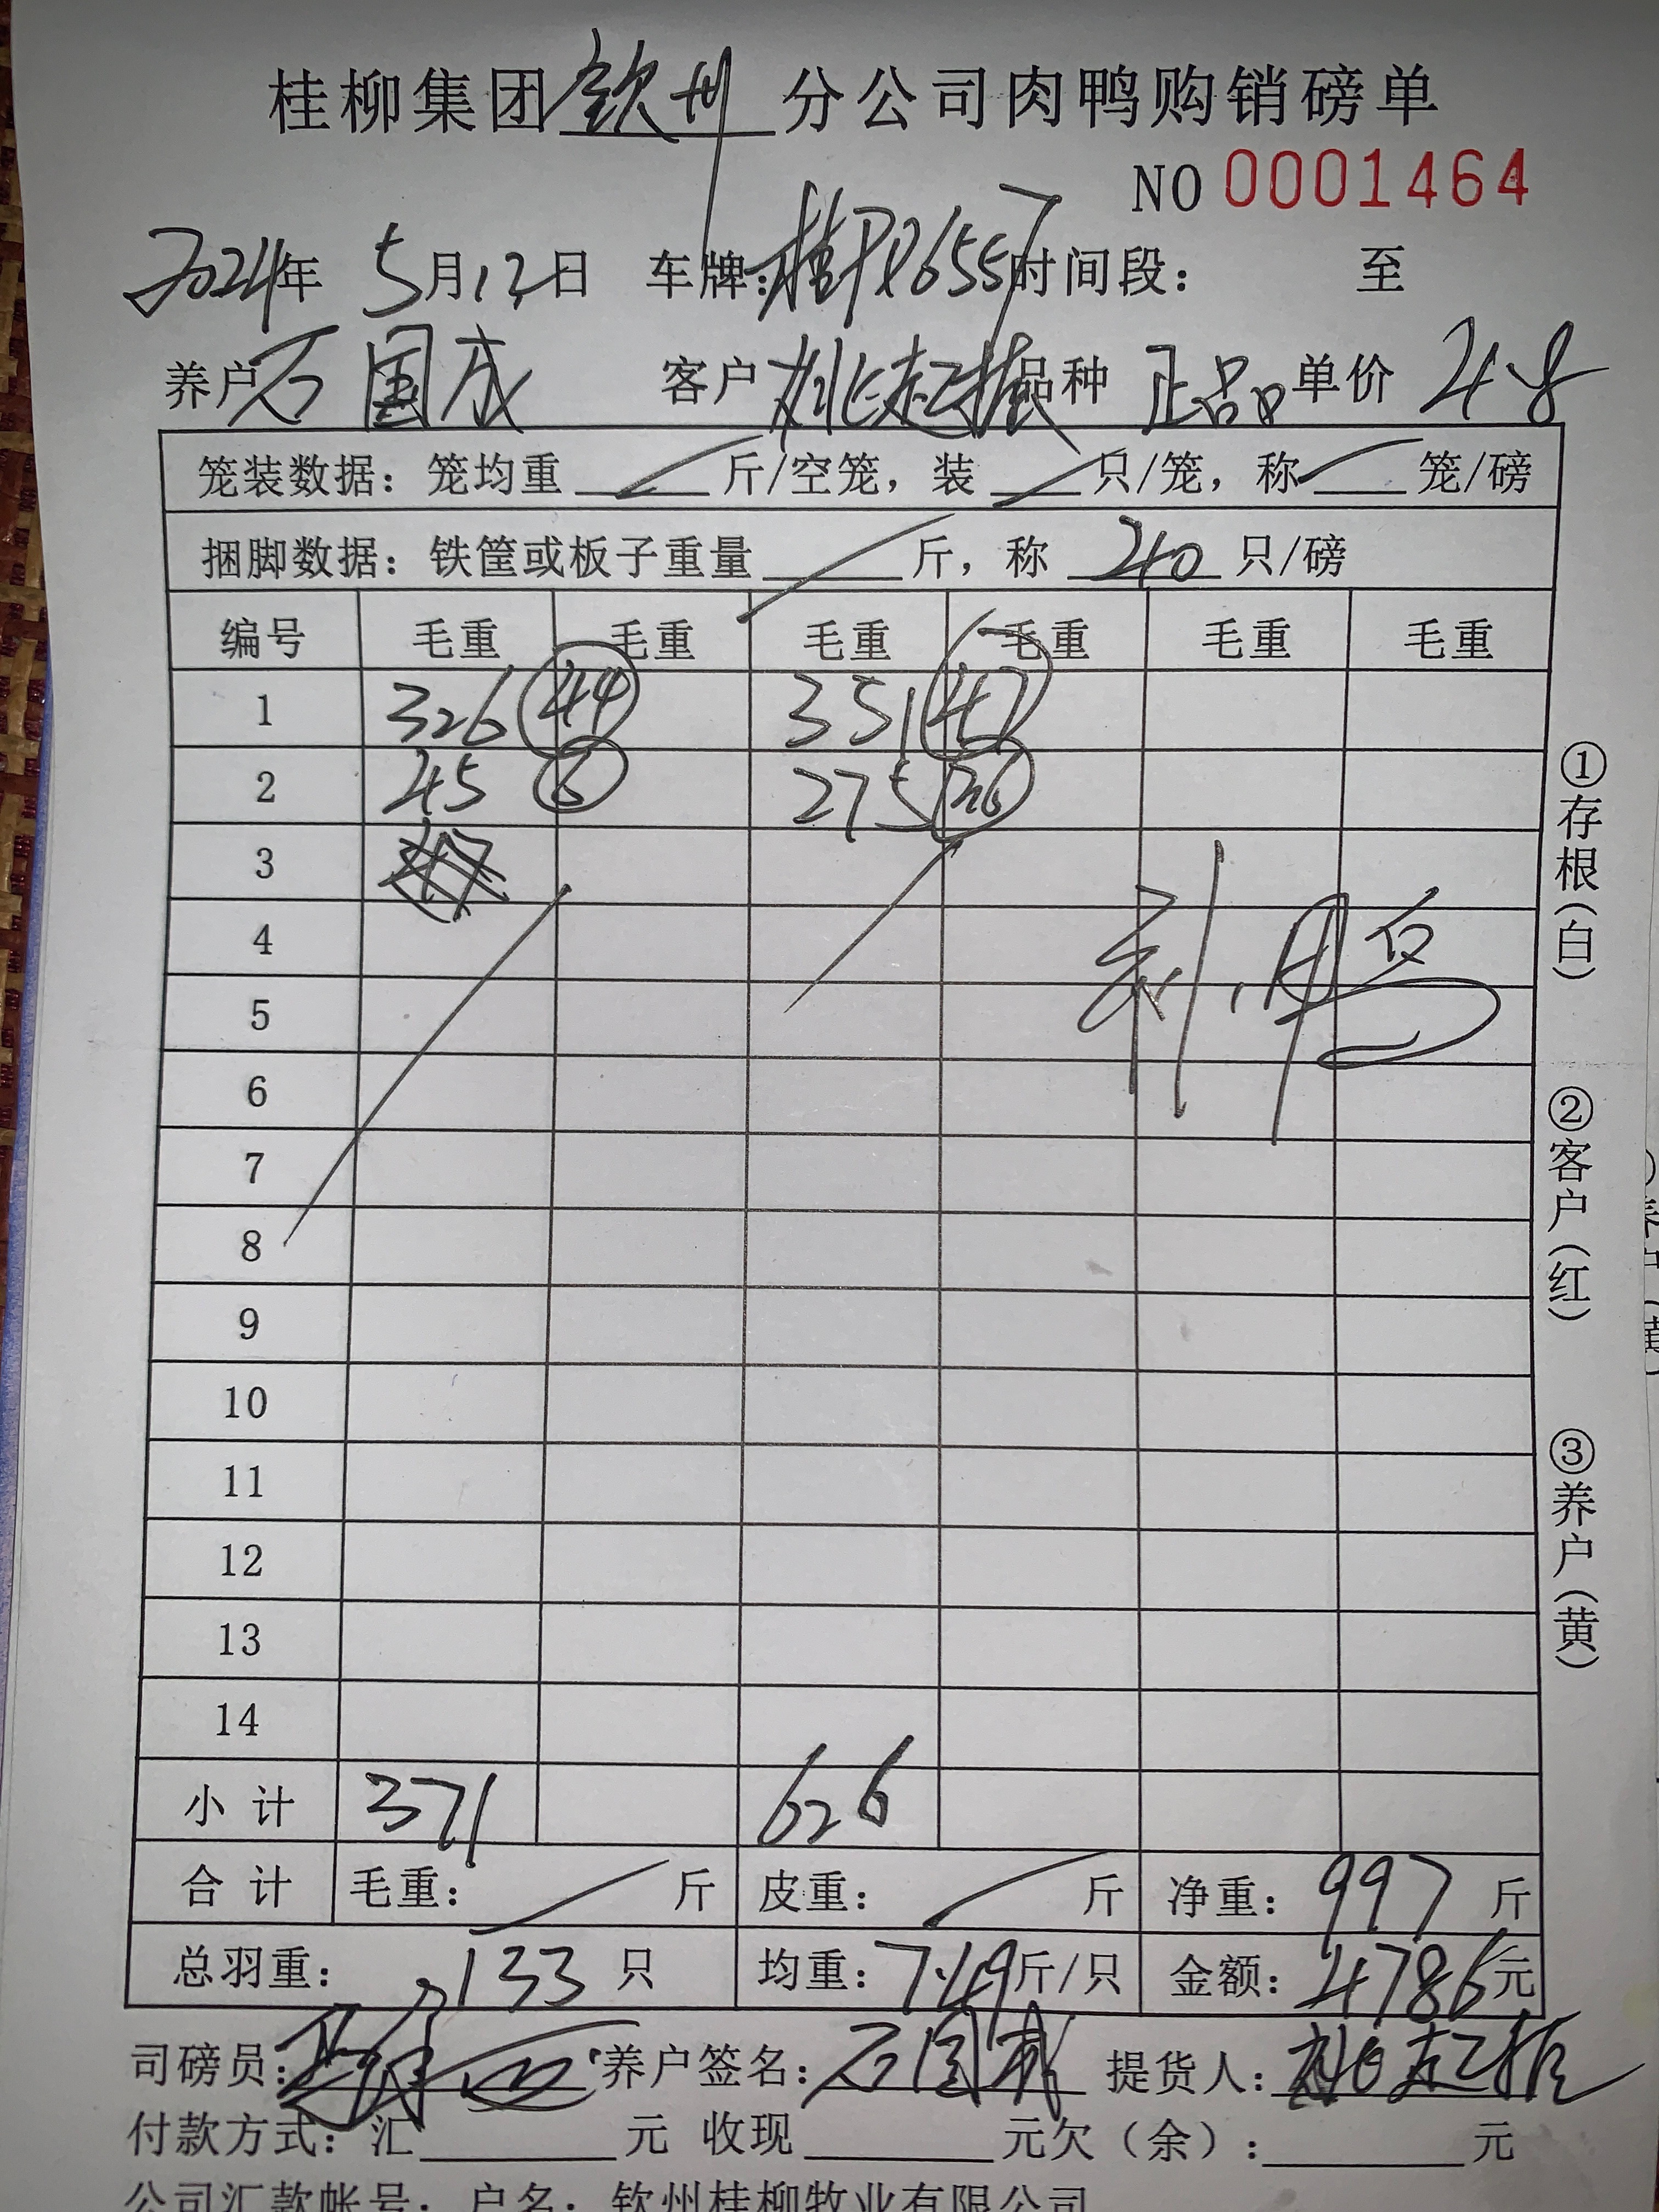 桂柳集团钦州分公司肉鸭购销磅单
NO 0001464
2024年 5月12日 车牌：桂PX6557时间段： 至
养户 石国成 客户 姚起振 品种 正品 单价 4.8
笼装数据：笼均重 斤/空笼，装 只/笼，称 笼/磅
捆脚数据：铁筐或板子重量 斤，称 40 只/磅
编号 毛重 毛重 毛重 毛重 毛重 毛重
1 326 44 351 47
2 45 6 275 36
3
4
5
6
7
8
9
10
11
12
13
14
小计 371 626
合计 毛重： 斤 皮重： 斤 净重：997斤
总羽重：133只 均重：7.49斤/只 金额：4786元
司磅员： 养户签名：石国成 提货人：姚起振
付款方式：汇 元 收现 元欠（余）： 元
公司汇款帐号：户名：钦州桂柳牧业有限公司
①存根（白）
②客户（红）
③养户（黄）